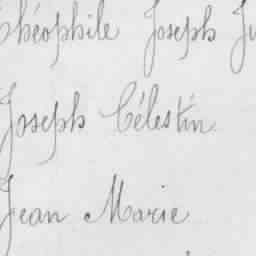 Théophile Joseph Ju
Joseph Célestin
Jean Marie